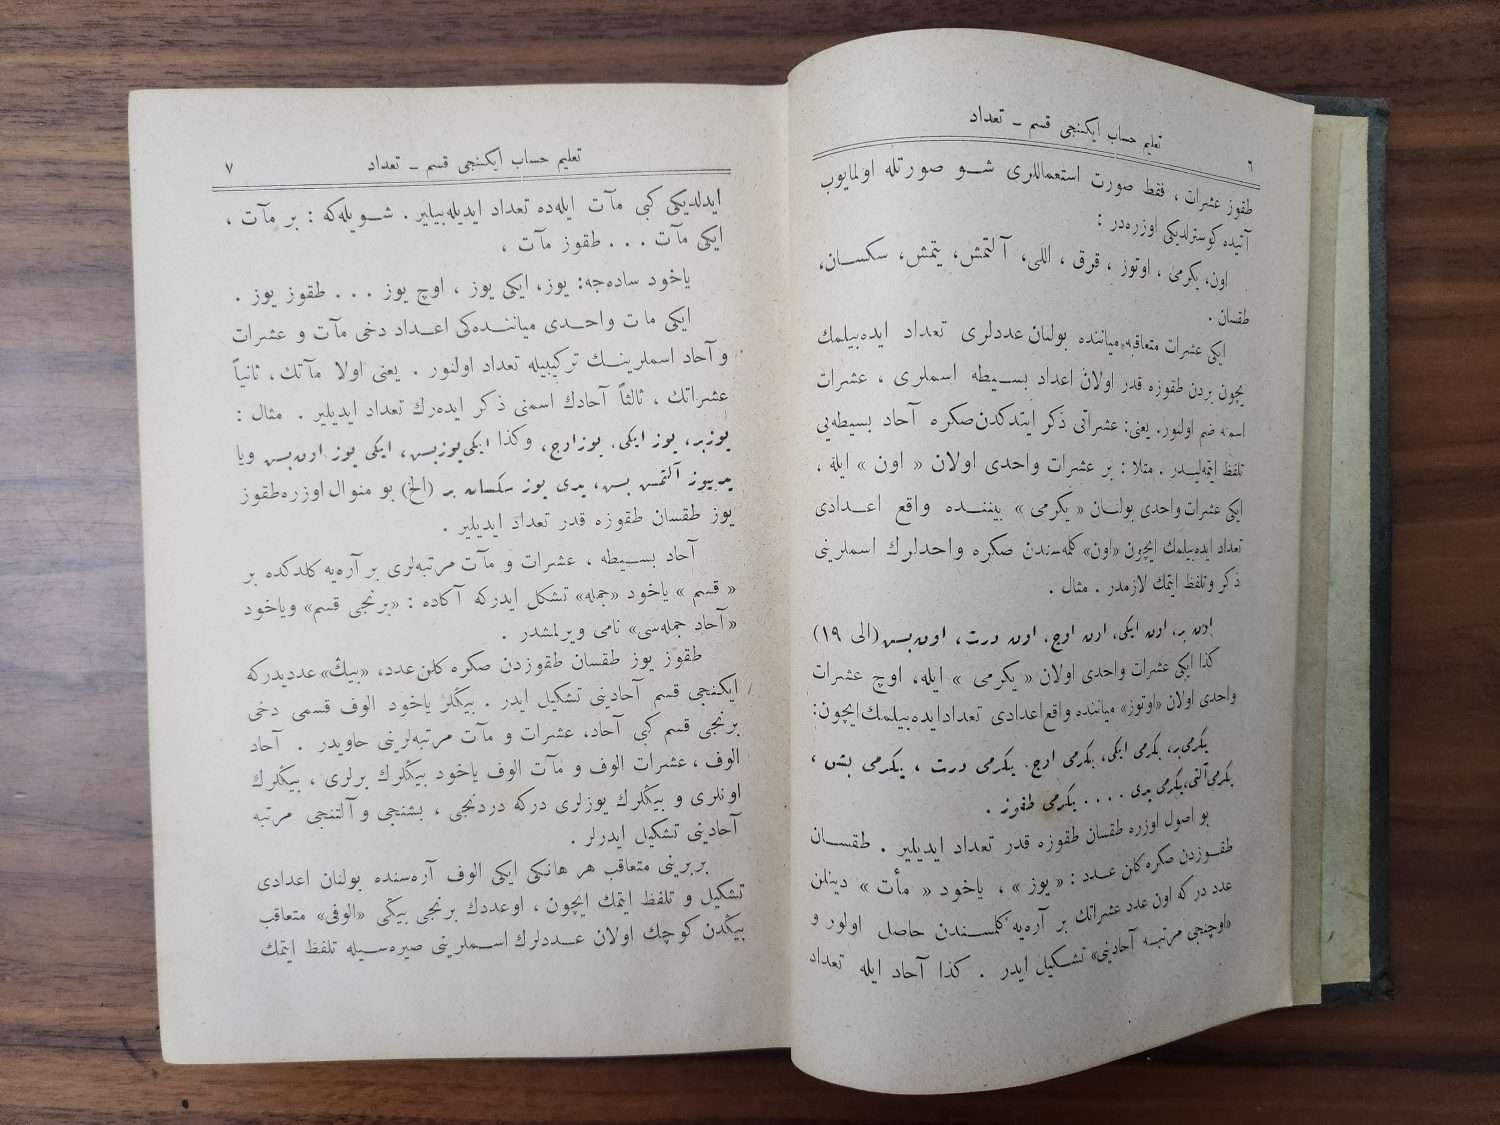 ٦
تعليم حساب ايكنجى قسم — تعداد
طقوز عشرات ، فقط صورت استعماللرى شو صورتله اولمايوب
آتيده كوسترلديكى اوزره‌در :
اون، يكرمى ، اوتوز ، قرق ، اللى، آلتمش، يتمش، سكسان،
طقسان .
ايكى عشرات متعاقبه ميابننده بولنان عددلرى تعداد ايده‌بيلمك
يچون بردن طقوزه قدر اولان اعداد بسيطه اسملرى ، عشرات
اسمنه ضم اولنور. يعنى: عشراتى ذكر ايتدكدن‌صكره آحاد بسيطه‌يى
تلفظ ايتمه‌ليدر . مثلا : بر عشرات واحدى اولان « اون » ايله ،
ايكى عشرات واحدى بولنان « يكرمى » بيننده واقع اعدادى
تعداد ايده‌بيلمك ايچون «اون» كلمه‌سندن صكره واحدلرك اسملرينى
ذكر وتلفظ ايتمك لازمدر . مثال .
اون بر، اون ايكى، اون اوچ، اون درت، اون بش (الى ١٩)
كذا ايكى عشرات واحدى اولان « يكرمى » ايله، اوچ عشرات
واحدى اولان «اوتوز» ميابننده واقع‌اعدادى تعدادايده‌بيلمك‌ايچون:
يكرمى‌بر، يكرمى ايكى، يكرمى اوچ. يكرمى درت ، يكرمى بش ،
يكرمى‌آلتى،يكرمى يدى .... يكرمى طقوز .
بو اصول اوزره طقسان طقوزه قدر تعداد ايديلير . طقسان
طقوزدن صكره كلن عدد : « يوز » ، ياخود « مأت » دينلن
عدد در كه اون عدد عشراتك بر آره‌يه كلمسندن حاصل اولور و
«اوچنجى مرتبه آحادينى» تشكيل ايدر . كذا آحاد ايله تعداد
تعليم حساب ايكنجى قسم — تعداد
٧
ايدلديكى كبى مآت ايله‌ده تعداد ايديله‌بيلير . شويله‌كه : بر مآت ،
ايكى مآت ... طقوز مآت ،
ياخود ساده‌جه: يوز، ايكى يوز ، اوچ يوز ... طقوز يوز .
ايكى مات واحدى مياننده‌كى اعداد دخى مآت و عشرات
و آحاد اسملرينك تركيبيله تعداد اولنور . يعنى اولا مآتك، ثانياً
عشراتك ، ثالثاً آحادك اسمنى ذكر ايده‌رك تعداد ايديلير . مثال :
يوزبر، يوز ايكى. يوزاوچ، وكذا ايكى‌يوزبش، ايكى يوز اون‌بش ويا
يديوز آلتمش بش، يدى يوز سكسان بر (الخ) بو منوال اوزره‌طقوز
يوز طقسان طقوزه قدر تعداد ايديلير .
آحاد بسيطه ، عشرات و مآت مرتبه‌لرى بر آره‌يه كلدكده بر
« قسم » ياخود «جمله» تشكل ايدركه آكاده : «برنجى قسم» وياخود
«آحاد جمله‌سى» نامى ويرلمشدر .
طقوز يوز طقسان طقوزدن صكره كلن‌عدد، «بيڭ» عدديدركه
ايكنجى قسم آحادينى تشكيل ايدر . بيڭلر ياخود الوف قسمى دخى
برنجى قسم كبى آحاد، عشرات و مآت مرتبه‌لرينى حاويدر . آحاد
الوف ، عشرات الوف و مآت الوف ياخود بيڭلرك برلرى ، بيڭلرك
اونلرى و بيڭلرك يوزلرى دركه دردنجى ، بشنجى و آلتنجى مرتبه
آحادينى تشكيل ايدرلر .
بربرينى متعاقب هر هانكى ايكى الوف آره‌سنده بولنان اعدادى
تشكيل و تلفظ ايتمك ايچون ، اوعددك برنجى بيڭى «الوفى» متعاقب
بيڭدن كوچك اولان عددلرك اسملرينى صيره‌سيله تلفظ ايتمك